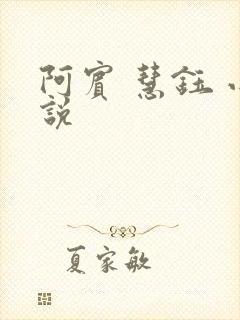 阿賓 慧鈺 小
説
夏家敏